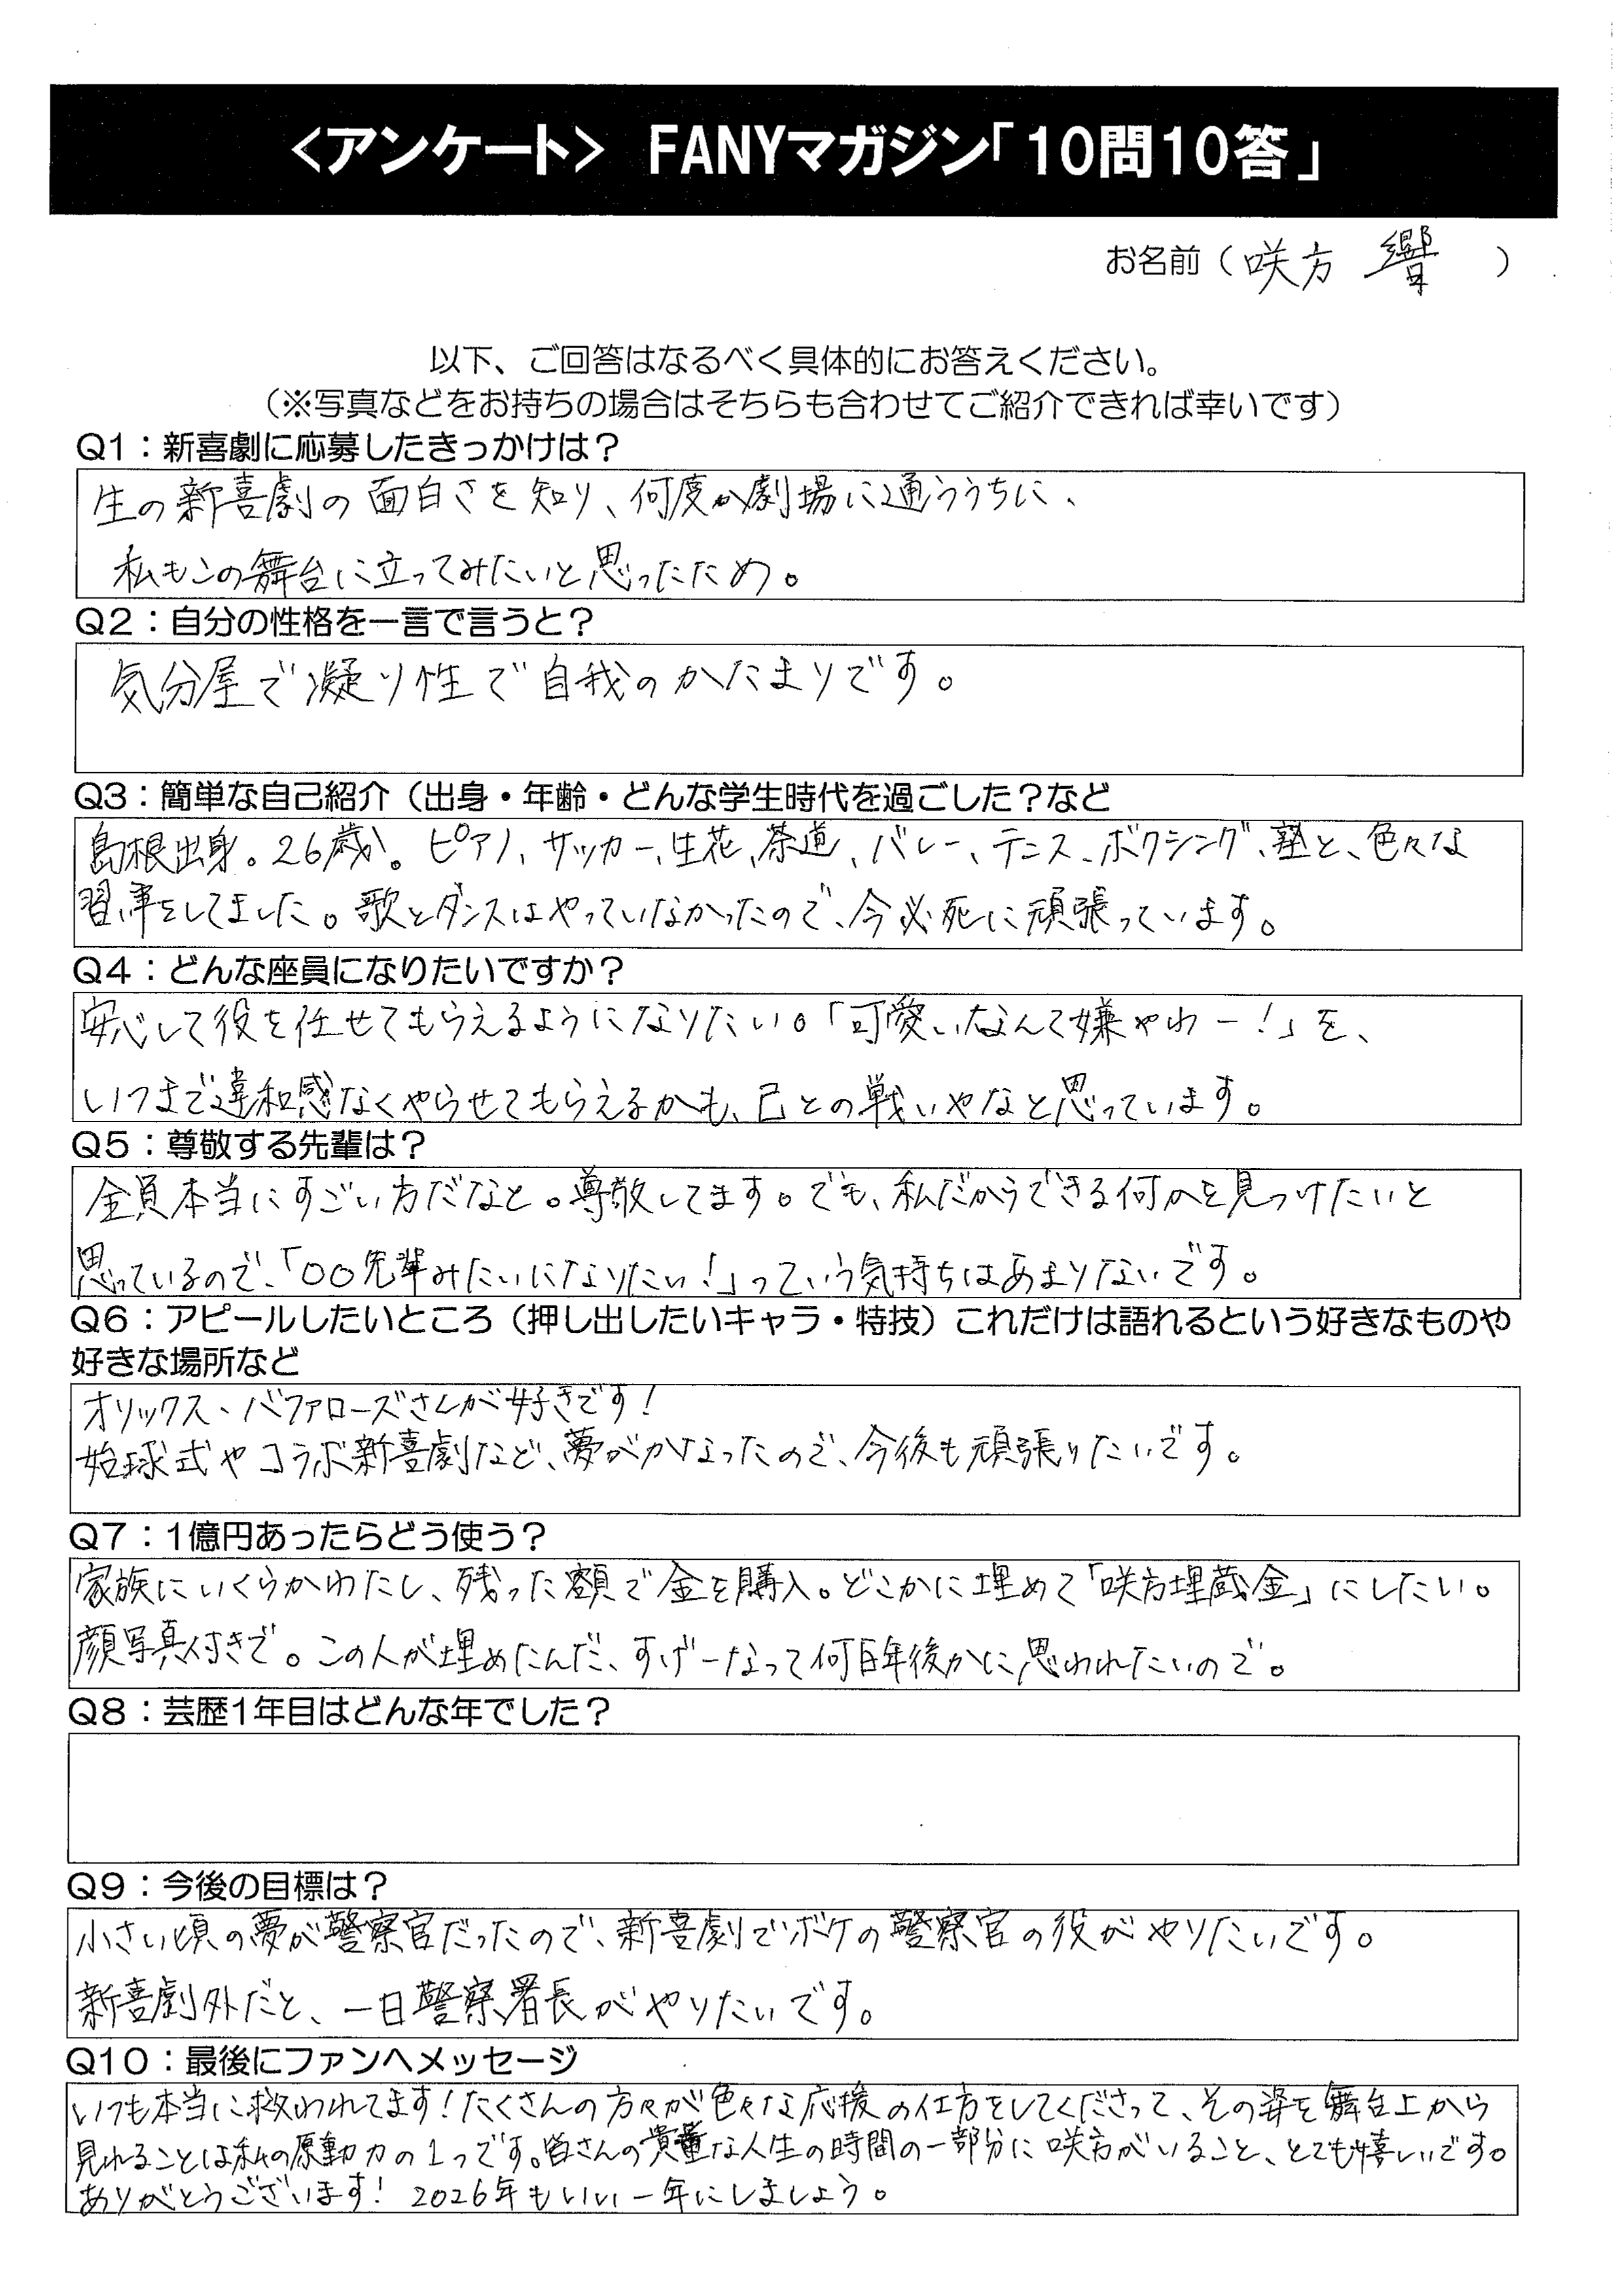 <アンケート> FANYマガジン「10問10答」
お名前（咲方 響 ）
以下、ご回答はなるべく具体的にお答えください。
（※写真などをお持ちの場合はそちらも合わせてご紹介できれば幸いです）
Q1：新喜劇に応募したきっかけは？
生の新喜劇の面白さを知り、何度か劇場に通ううちに、
私もこの舞台に立ってみたいと思ったため。
Q2：自分の性格を一言で言うと？
気分屋で凝り性で自我のかたまりです。
Q3：簡単な自己紹介（出身・年齢・どんな学生時代を過ごした？など
島根出身。26歳。ピアノ、サッカー、生花、茶道、バレー、テニス、ボクシング、塾と、色々な
習い事をしてました。歌とダンスはやっていなかったので、今必死に頑張っています。
Q4：どんな座員になりたいですか？
安心して役を任せてもらえるようになりたい。「可愛いなんて嫌やわー！」を、
いつまで違和感なくやらせてもらえるかも、己との戦いやなと思っています。
Q5：尊敬する先輩は？
全員本当にすごい方だなと。尊敬してます。でも、私だからできる何かを見つけたいと
思っているので、「〇〇先輩みたいになりたい！」っていう気持ちはあまりないです。
Q6：アピールしたいところ（押し出したいキャラ・特技）これだけは語れるという好きなものや
好きな場所など
オリックス・バファローズさんが好きです！
始球式やコラボ新喜劇など、夢がかなったので、今後も頑張りたいです。
Q7：1億円あったらどう使う？
家族にいくらかわたし、残った額で金を購入。どこかに埋めて「咲方埋蔵金」にしたい。
顔写真付きで。この人が埋めたんだ、すげーなって何百年後かに思われたいので。
Q8：芸歴1年目はどんな年でした？
Q9：今後の目標は？
小さい頃の夢が警察官だったので、新喜劇でボケの警察官の役がやりたいです。
新喜劇外だと、一日警察署長がやりたいです。
Q10：最後にファンへメッセージ
いつも本当に救われてます！たくさんの方々が色々な応援の仕方をしてくださって、その姿を舞台上から
見れることは私の原動力の1つです。皆さんの貴重な人生の時間の一部分に咲方がいること、とても嬉しいです。
ありがとうございます！ 2026年もいい一年にしましょう。